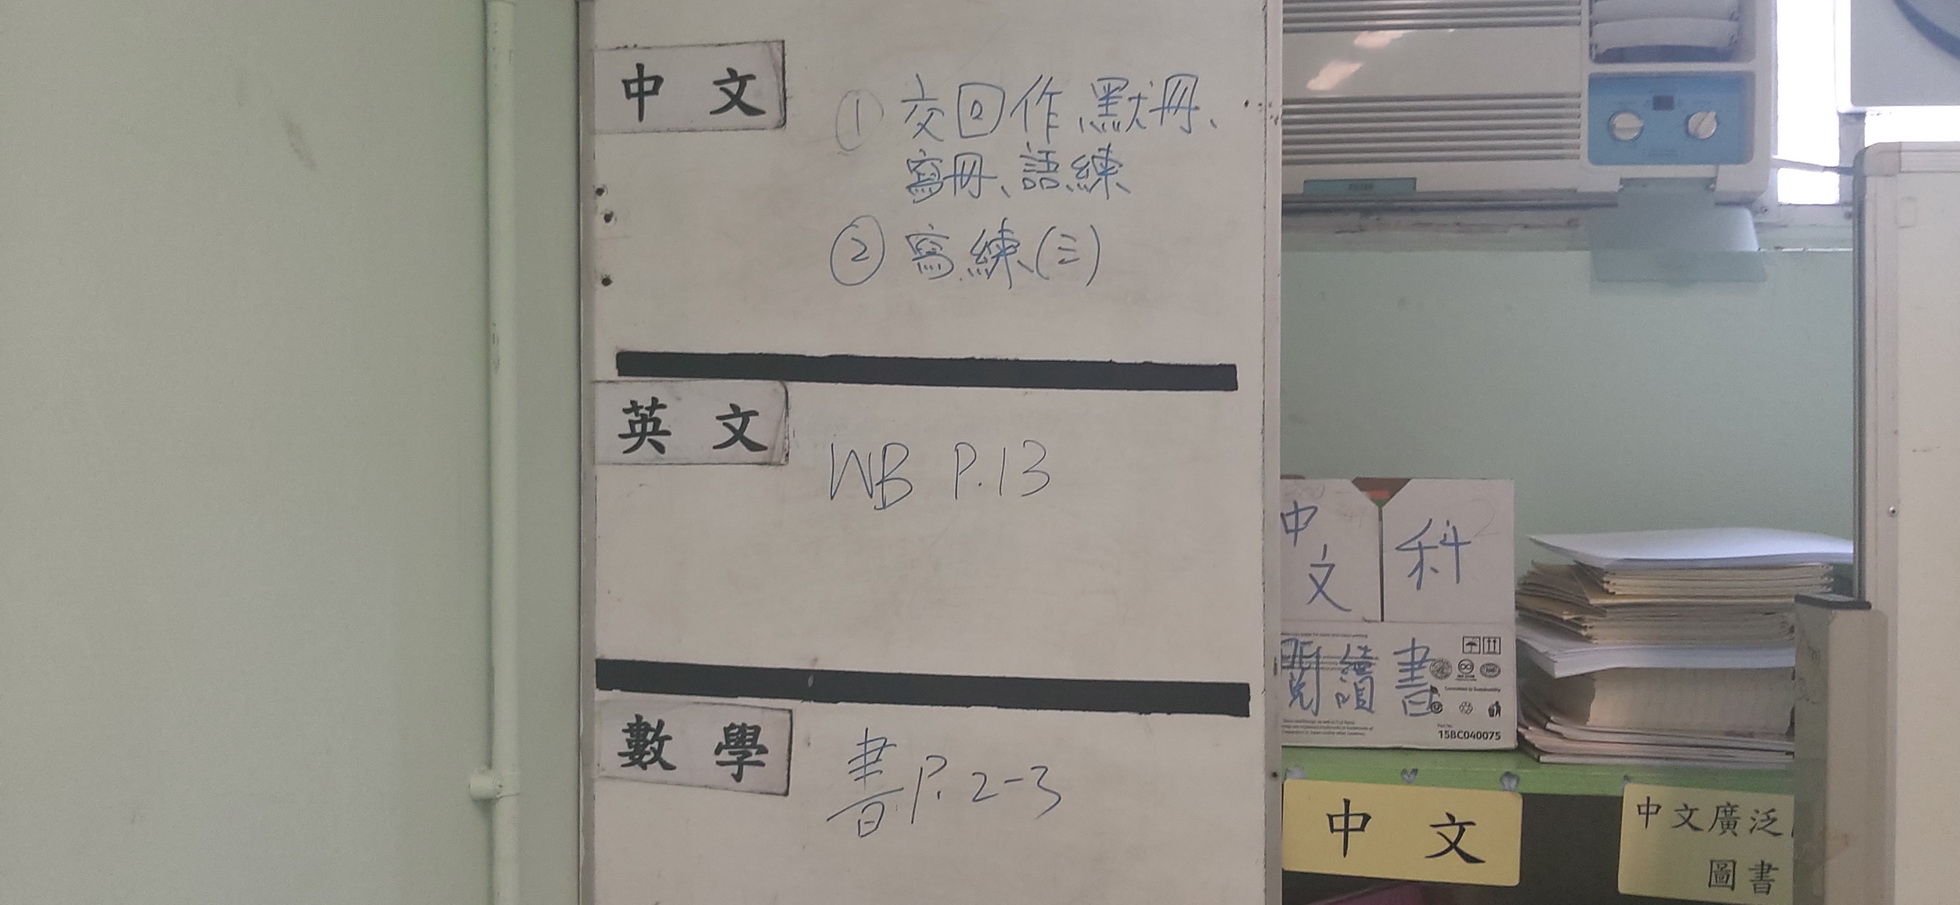 中文
① 交回作、默冊、
寫冊、語練
② 寫練(三)
英文
WB P.13
數學
書P.2-3
中文
科
閱讀書
15BC040075
中文
中文廣泛
圖書